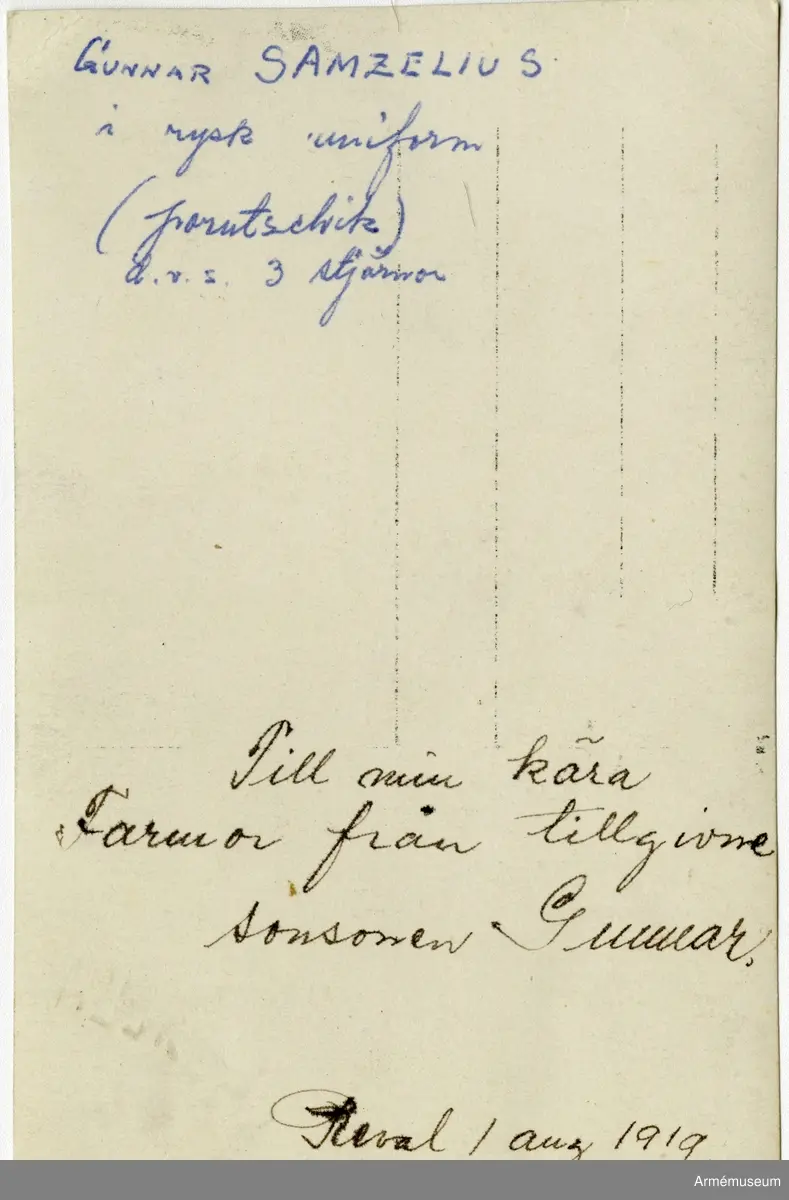 GUNNAR SAMZELIUS
i rysk uniform
(porutschik)
d.v.s. 3 stjärnor
Till min kära
Farmor från tillgivne
sonsonen Gunnar.
Reval 1 aug 1919
Armémuseum